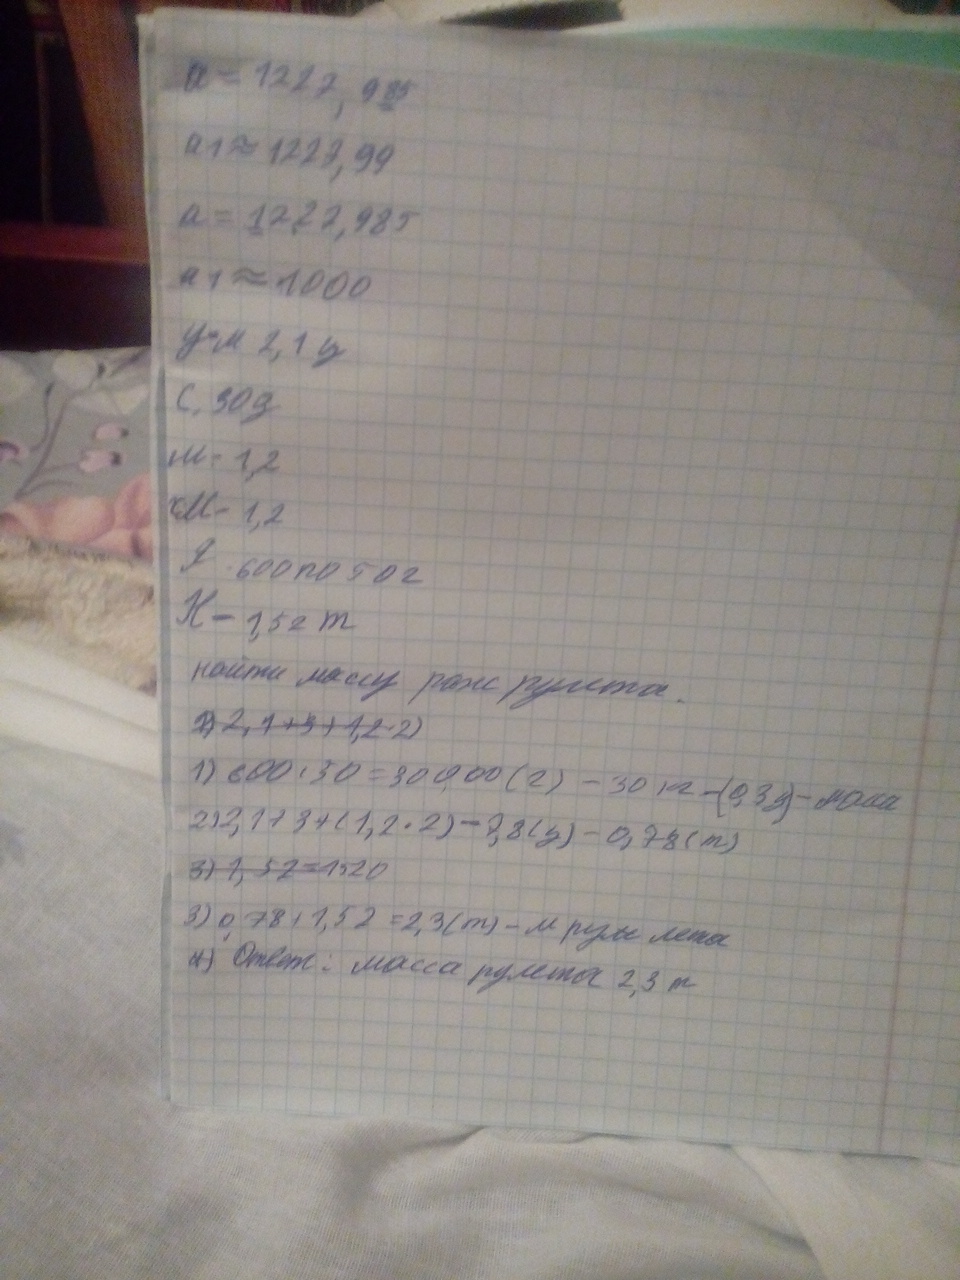 a = 1227,985
a1 ≈ 1227,99
a = 1227,985
a1 ≈ 1000
у-м 2,1 ц
С. 30g
м - 1,2
см - 1,2
Я - 600 по 50 г
К - 1,52 т
найти массу ранс рулета.
1) 2,1+3+1,2·2)
1) 600·50 = 30000 (г) - 30 кг - (0,3ц) - маса
2) 2,1+3+(1,2·2) = 7,8 (ц) - 0,78 (т)
3) 1,52=1520
3) 0,78+1,52 = 2,3 (т) - м рулета
4) Ответ: масса рулета 2,3 т